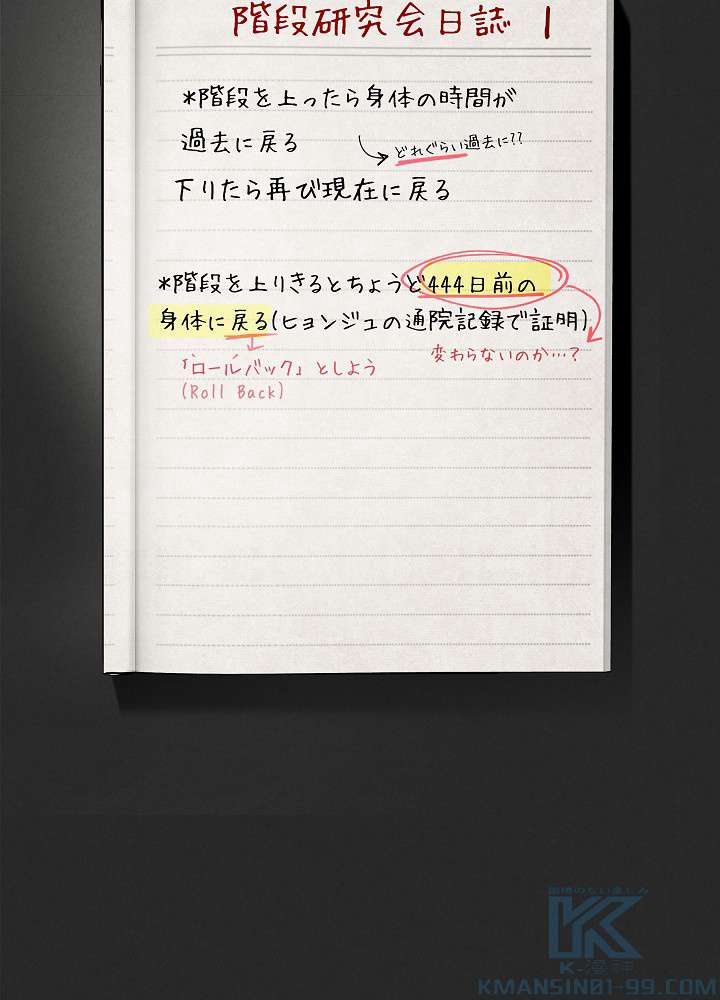 階段研究会日誌 1
*階段を上ったら身体の時間が
過去に戻る
どれぐらい過去に??
下りたら再び現在に戻る
*階段を上りきるとちょうど444日前の
身体に戻る(ヒョンジュの通院記録で証明)
変わらないのか…?
「ロールバック」としよう
(Roll Back)
国境のない楽しみ
K-漫神
KMANSIN01-99.COM